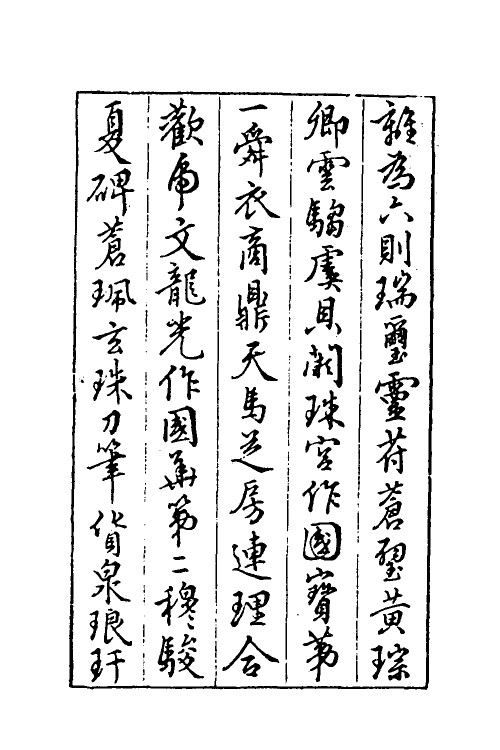 雜為六則瑞璽靈苻蒼璧黃琮
卿雲騶虞貝闕珠宮作國寶第
一舜衣商鼎天馬芝房連理合
歡帍文龍光作國華第二穆駿
夏碑蒼珮玄珠刀筆貨泉琅玕